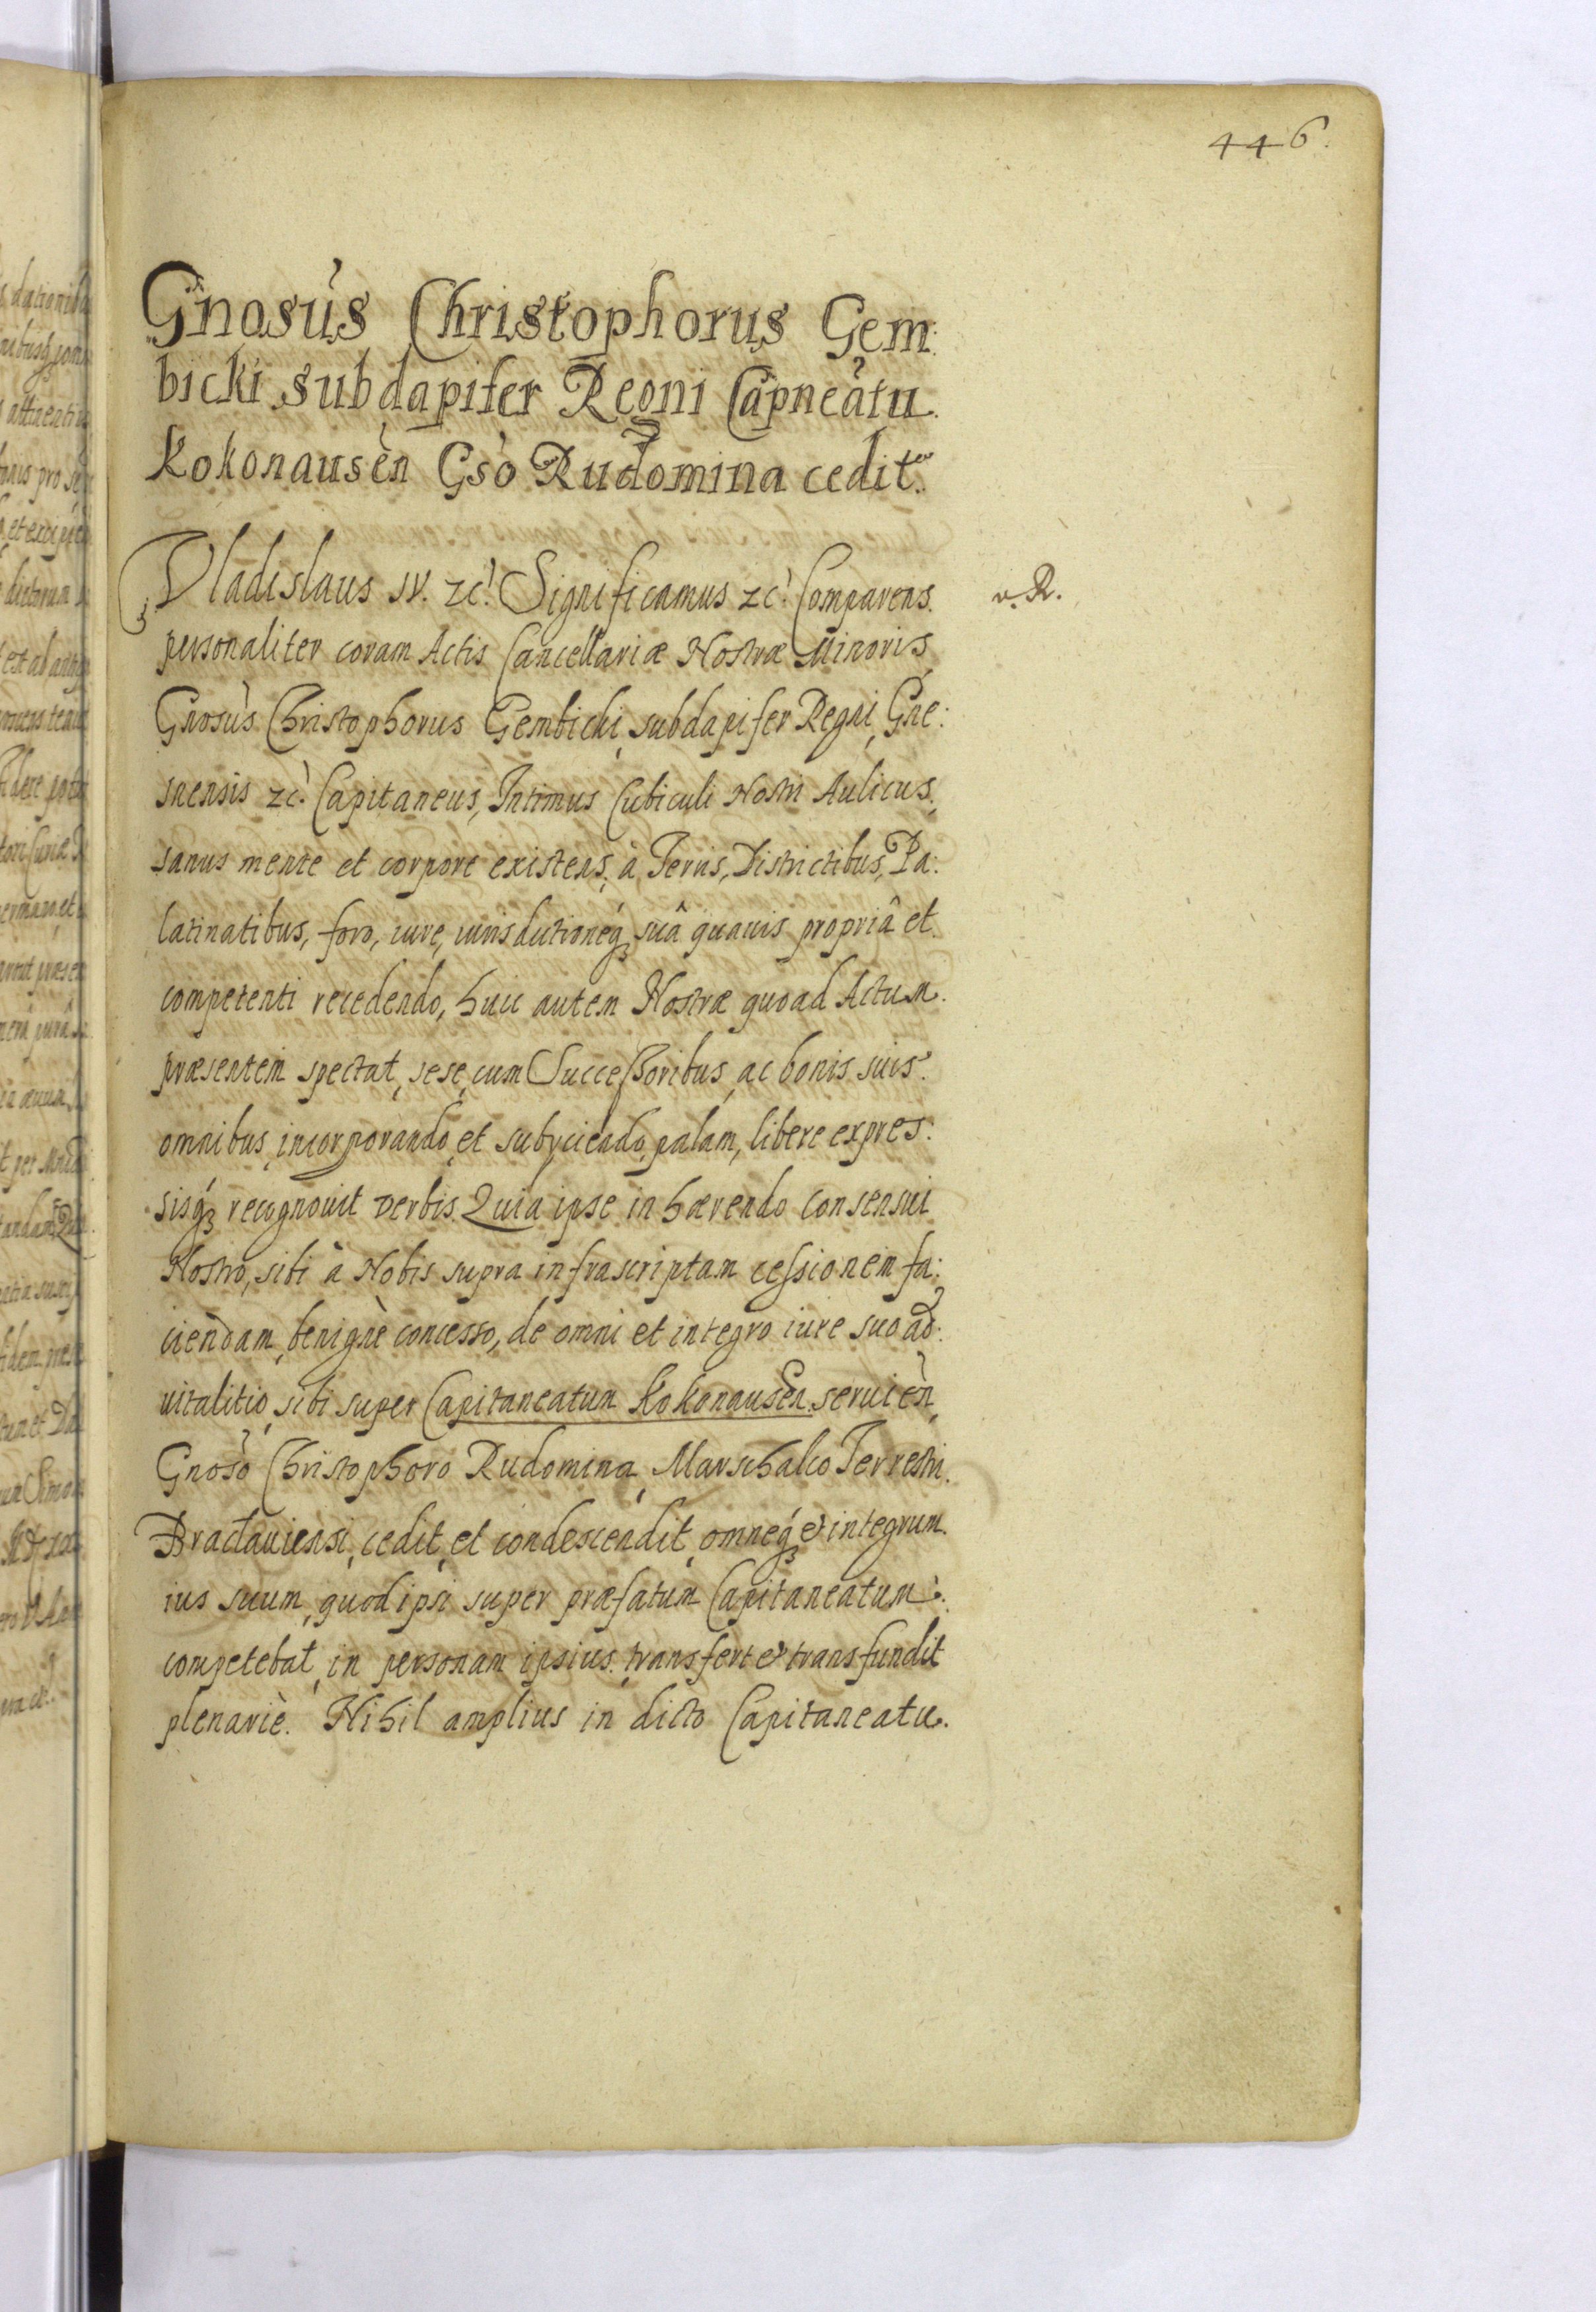 446.
Gnosùs Christophorus Gem:
bicki subdapifer Regni Capneàtu
Kokonausèn Gsò Rudomina cedit.
Vladislaus IV. zc. Significamus zc. Comparens
v. R.
personaliter coram Actis Cancellariæ Nostræ Minoris
Gnosùs Christophorus Gembicki subdapifer Regni, Gne:
snensis zc. Capitaneus, Intimus Cubiculi Nostri Aulicus,
sanus mente et corpore existens, à Terris, Districtibus, Pa:
latinatibus, foro, iure, iurisdictioneq3 suâ quauis propriâ et
competenti recedendo, huic autem Nostræ quoad Actum
præsentem spectat, sese, cum Successoribus, ac bonis suis
omnibus incorporando, et subyciendo, palam, libere expres:
sisq3 recognouit verbis. Quia ipse inhærendo consensui
Nostro, sibi à Nobis supra infrascriptam cessionem fa:
ciendam, benignè concesso, de omni et integro iure suo ad:
uitalitio, sibi super Capitaneatum Kokonausèn seruièn,
Gnosò Christophoro Rudomina, Marschalco Terrestri
Braclauiensi, cedit, et condescendit, omneq3 & integrum
ius suum, quod ipsi super præfatum Capitaneatum
competebat, in personam ipsius transfert & transfundit
plenariè. Nihil amplius in dicto Capitaneatu